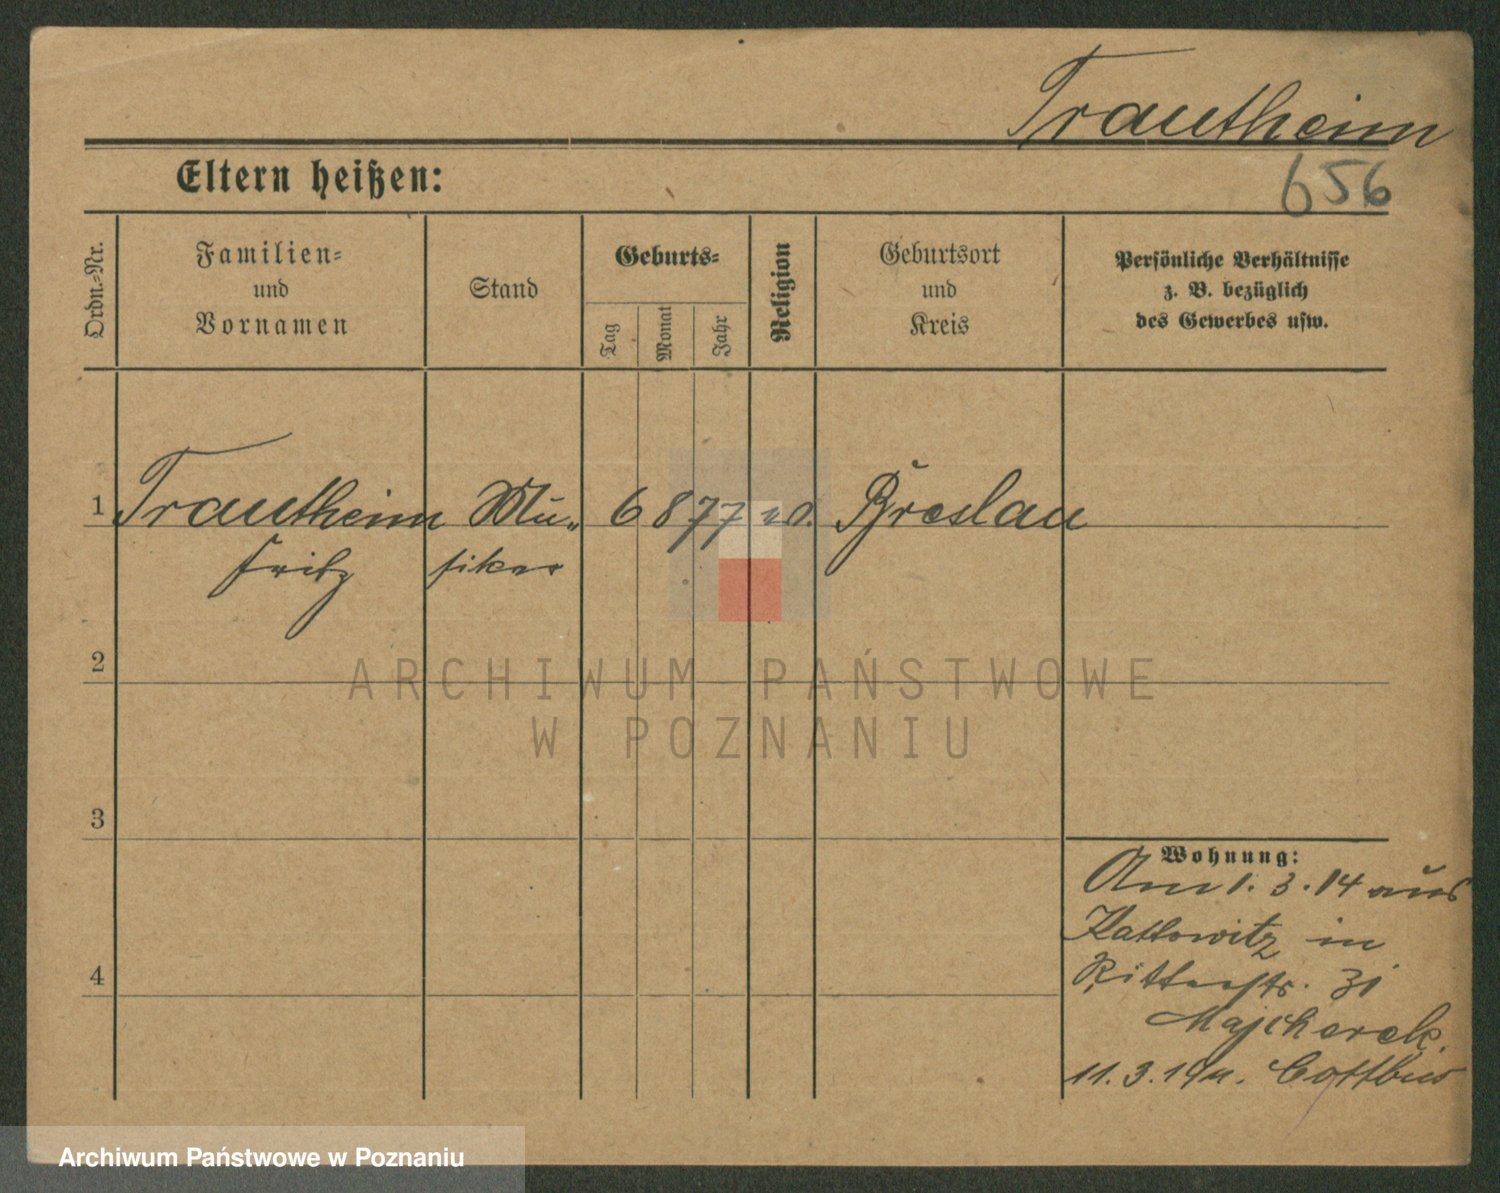 Trautheim
656
Eltern heißen:
Ordn.-Nr.
Familien-
und
Vornamen
Stand
Geburts-
Tag
Monat
Jahr
Religion
Geburtsort
und
Kreis
Persönliche Verhältnisse
z. B. bezüglich
des Gewerbes usw.
1 Trautheim Mu- 6 8 77 Breslau
Fritz siker
2
3
4
Wohnung:
Am 1. 3. 14 aus
Kattowitz in
Ritterstr. 31
Majcherek.
11. 3. 14 n. Cottbus
ARCHIWUM PAŃSTWOWE
W POZNANIU
Archiwum Państwowe w Poznaniu